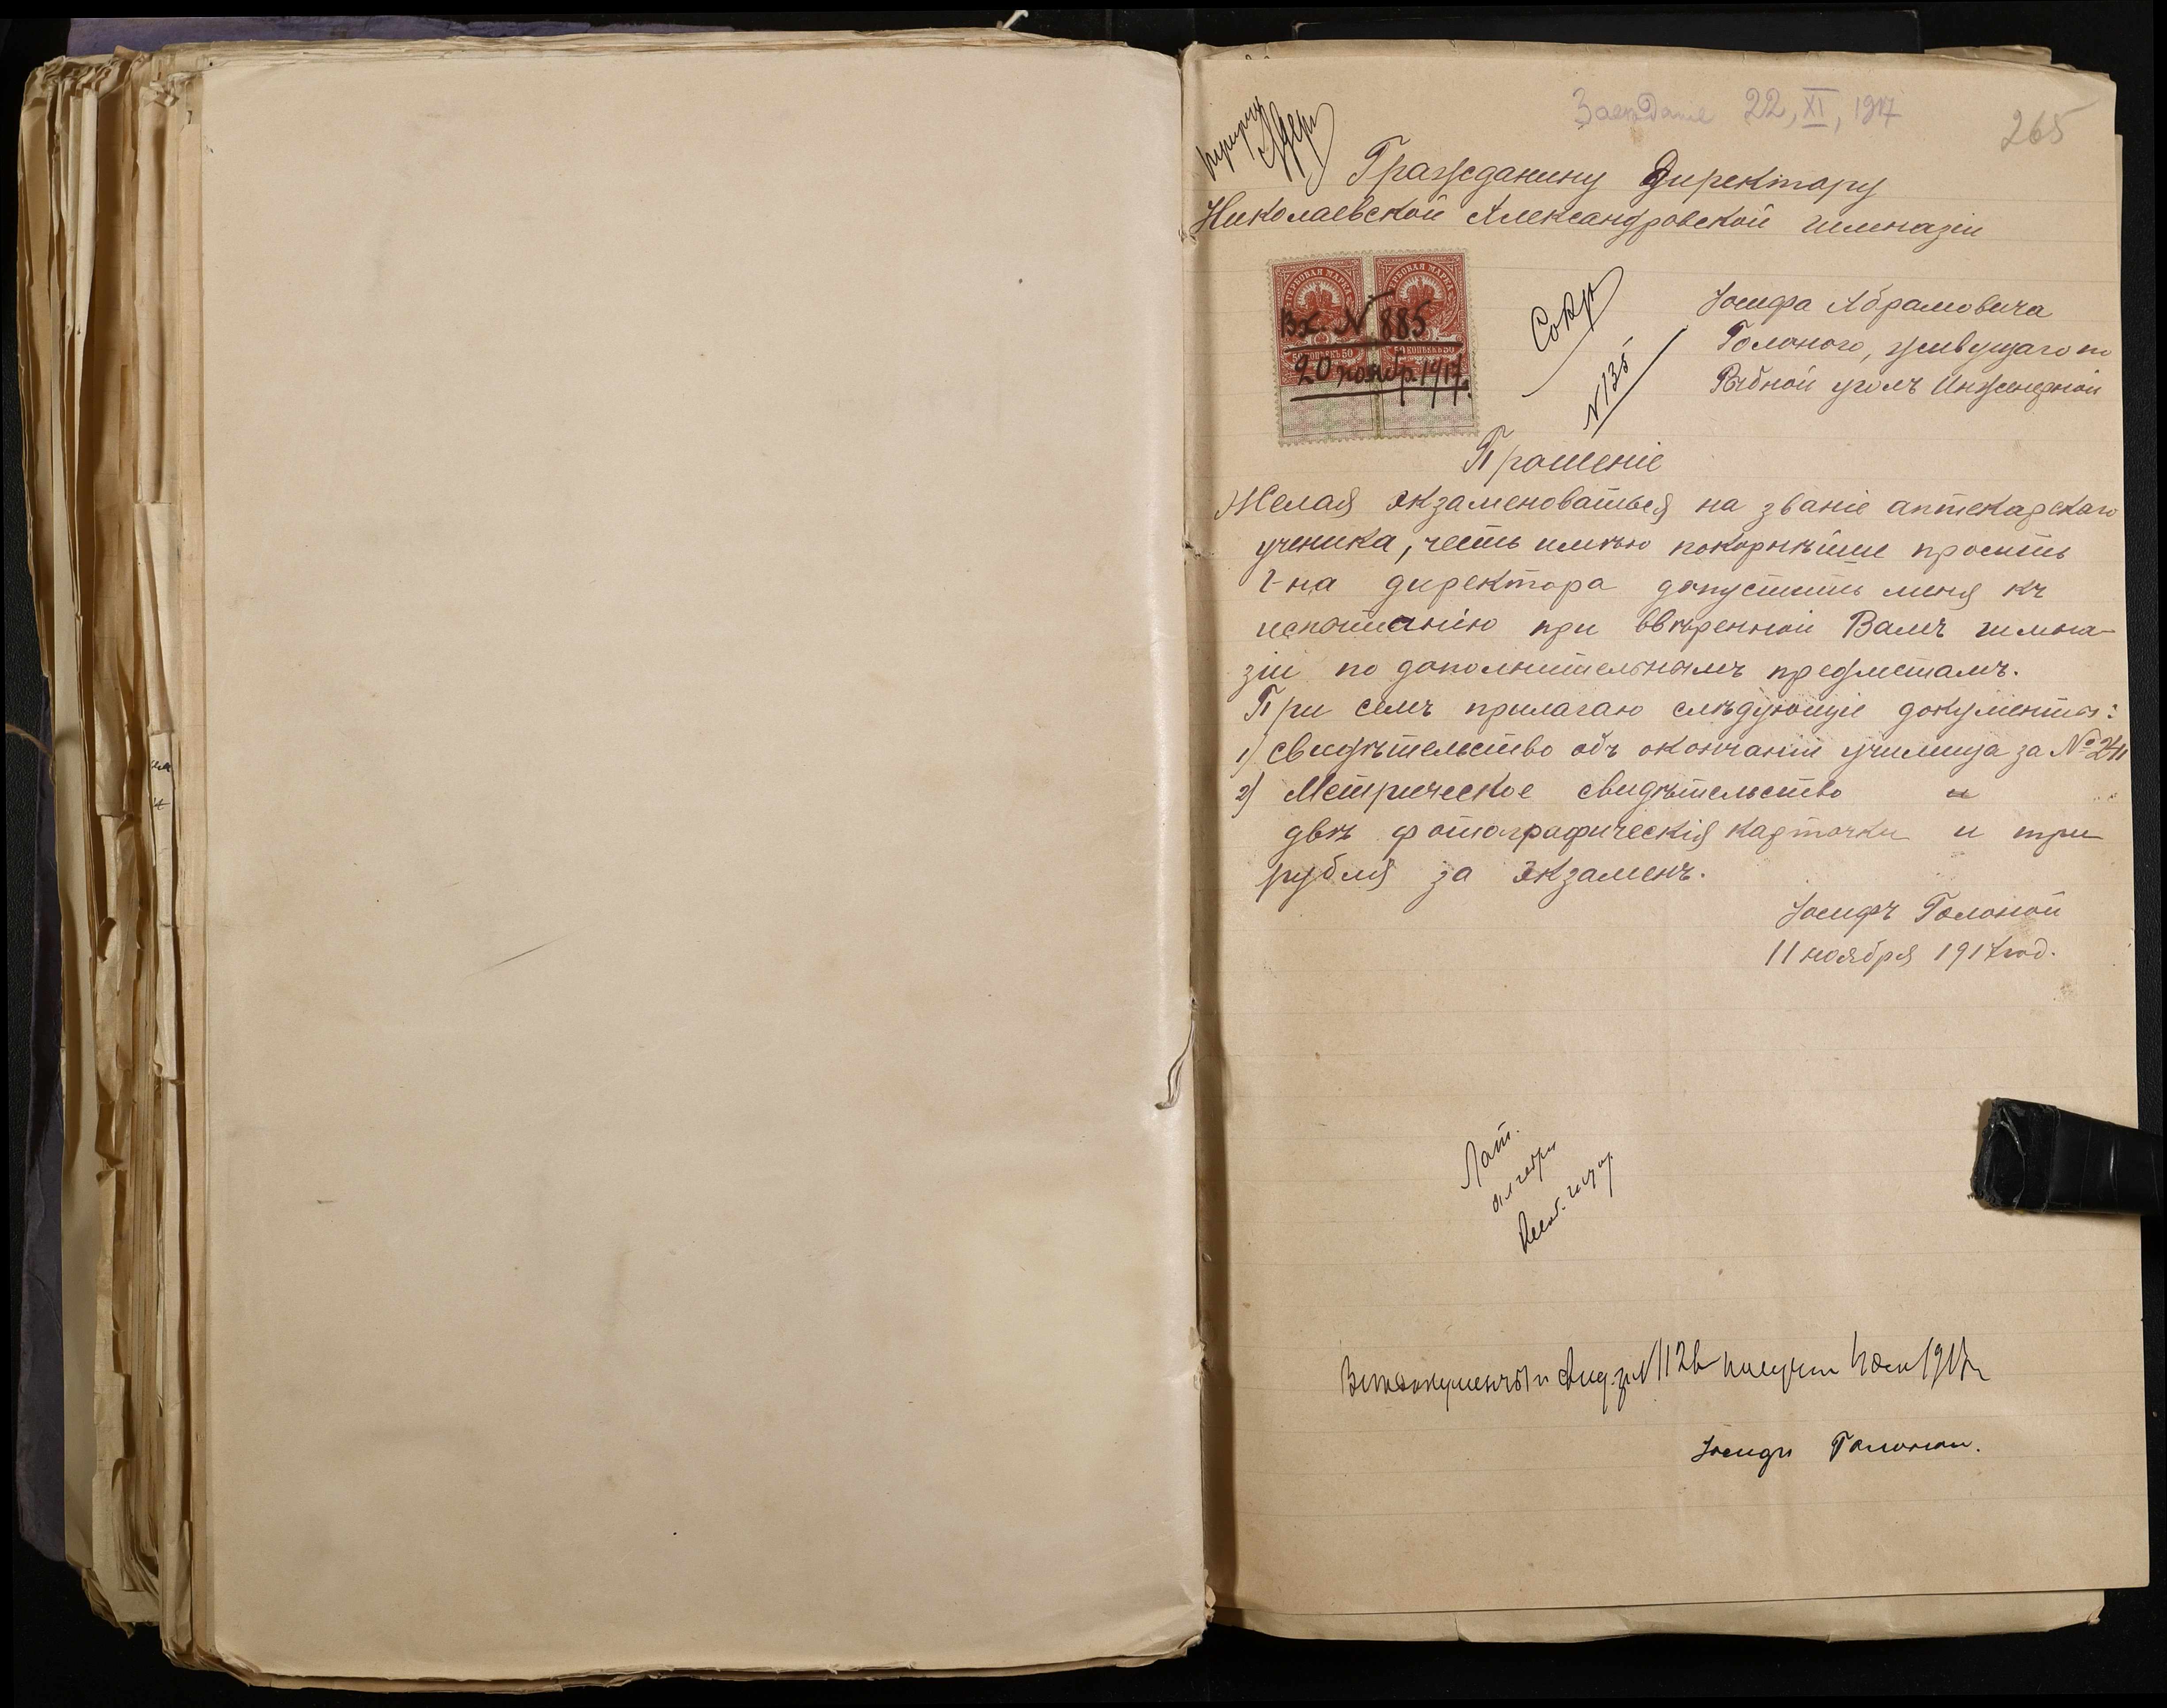 Засѣданіе 22, XI, 1917
265
Гражданину Директору
Николаевской Александровской гимназіи
ГЕРБОВАЯ МАРКА
ГЕРБОВАЯ МАРКА
Вх. № 885
50 КОПѢЕКЪ 50
50 КОПѢЕКЪ 50
20 ноябр. 1917.
№ 135
Іосифа Абрамовича
Голоного, живущаго по
Рыбной уголъ Инженерной
Прошеніе
Желая экзаменоваться на званіе аптекарскаго
ученика, честь имѣю покорнѣйше просить
г-на директора допустить меня къ
испытанію при ввѣренной Вамъ гимна-
зіи по дополнительнымъ предметамъ.
При семъ прилагаю слѣдующіе документы:
1) Свидѣтельство объ окончаніи училища за № 241
2) Метрическое свидѣтельство и
двѣ фотографическія карточки и три
рубля за экзаменъ.
Іосифъ Голоной
11 ноября 1917 год.
Лат.
алгебра
документы и свид. за № 1126 получил 1917
Іосифъ Голоной.